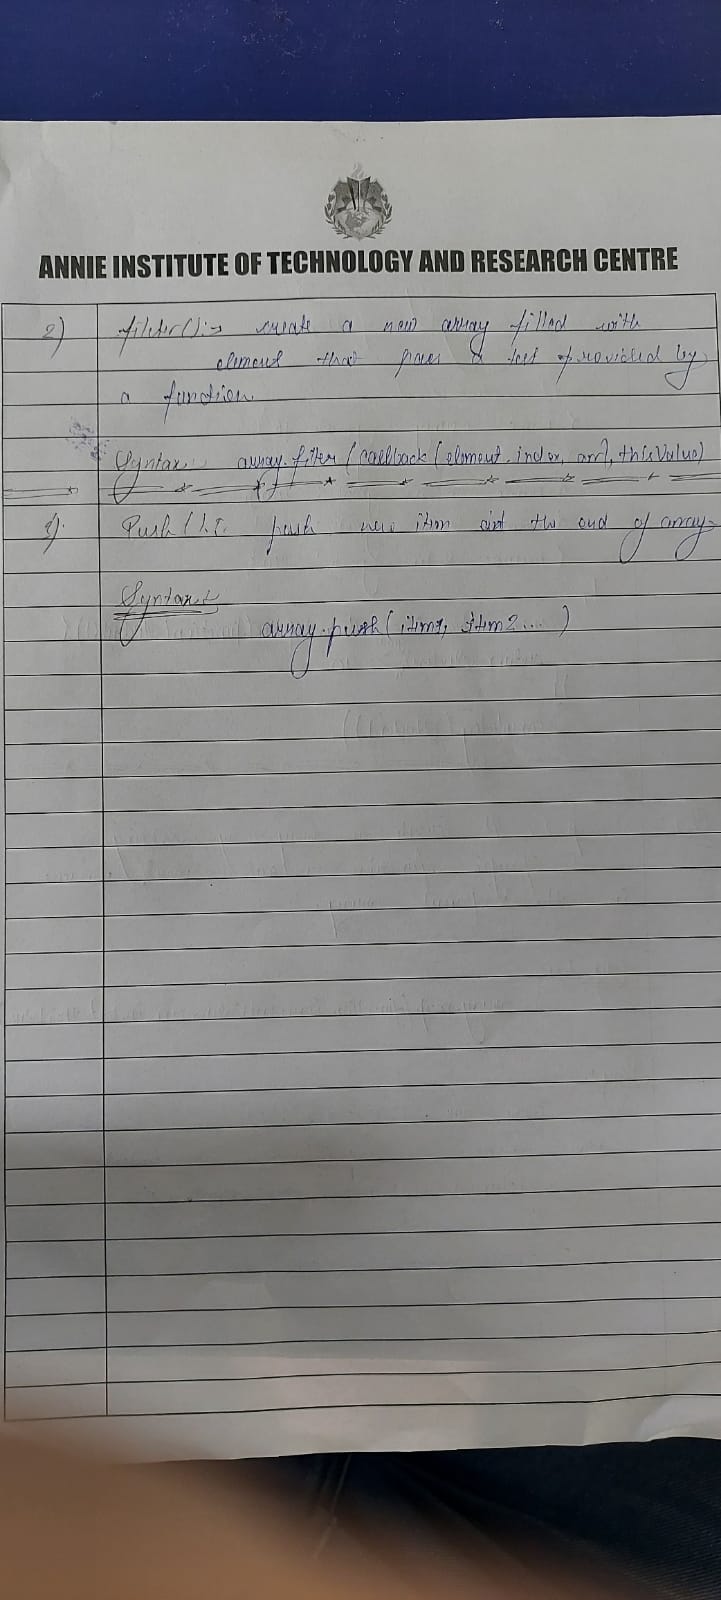 ANNIE INSTITUTE OF TECHNOLOGY AND RESEARCH CENTRE
2) filter():- create a new array filled with
element that pass a test provided by
a function.
Syntax:- array.filter(callback(element.index, arr), thisValue)
3). Push():- push new item at the end of array.
Syntax:-
array.push(item1, item2...)